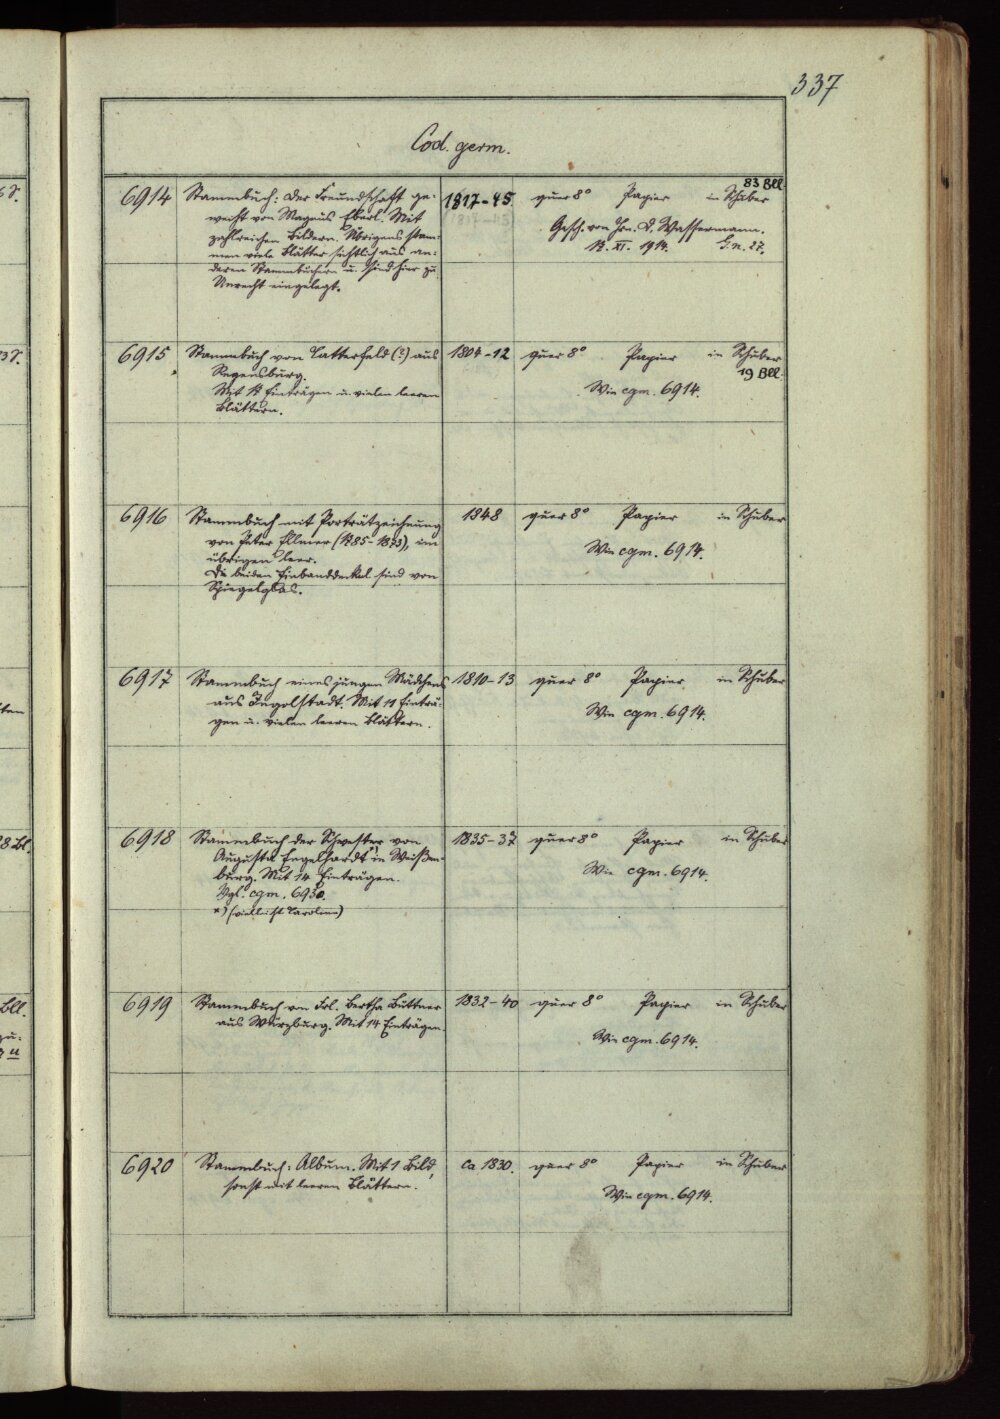 337
Cod. germ.
6914 Stammbuch: Der Freundschaft ge- 1817-45 quer 8° Papier in Schuber 83 Bll.
weiht von Magnus Eberl. Mit
zahlreichen Bildern. Übrigens stam-
men viele Blätter sichtlich aus an-
deren Stammbüchern u. sind hier zu
Unrecht eingelegt.
Gesch. von Hrn. D. Wassermann.
XI. 1914. E. n. 27.
6915 Stammbuch von Latterfeld (?) aus 1804-12 quer 8° Papier in Schuber
Regensburg. 19 Bll.
Mit Einträgen u. vielen leeren
Blättern.
Wie cgm. 6914.
6916 Stammbuch mit Porträtzeichnung 1848 quer 8° Papier in Schuber
von Peter Ellmer im
übrigen leer.
Die beiden Einbanddeckel sind von
Spiegelglas.
Wie cgm. 6914.
6917 Stammbuch eines jungen Mädchens 1810-13 quer 8° Papier in Schuber
aus Ingolstadt. Mit 11 Einträ-
gen u. vielen leeren Blättern.
Wie cgm. 6914.
6918 Stammbuch der Schwester von 1835-37 quer 8° Papier in Schuber
Augusta Engelhardt in Weißen-
burg. Mit 14 Einträgen.
Vgl. cgm. 6930.
*) (vielleicht Caroline)
Wie cgm. 6914.
6919 Stammbuch von Frl. Bertha Büttner 1832-40 quer 8° Papier in Schuber
aus Würzburg. Mit 14 Einträgen.
Wie cgm. 6914.
6920 Stammbuch: Album. Mit 1 Bild, ca 1830. quer 8° Papier in Schuber
sonst mit leeren Blättern.
Wie cgm. 6914.